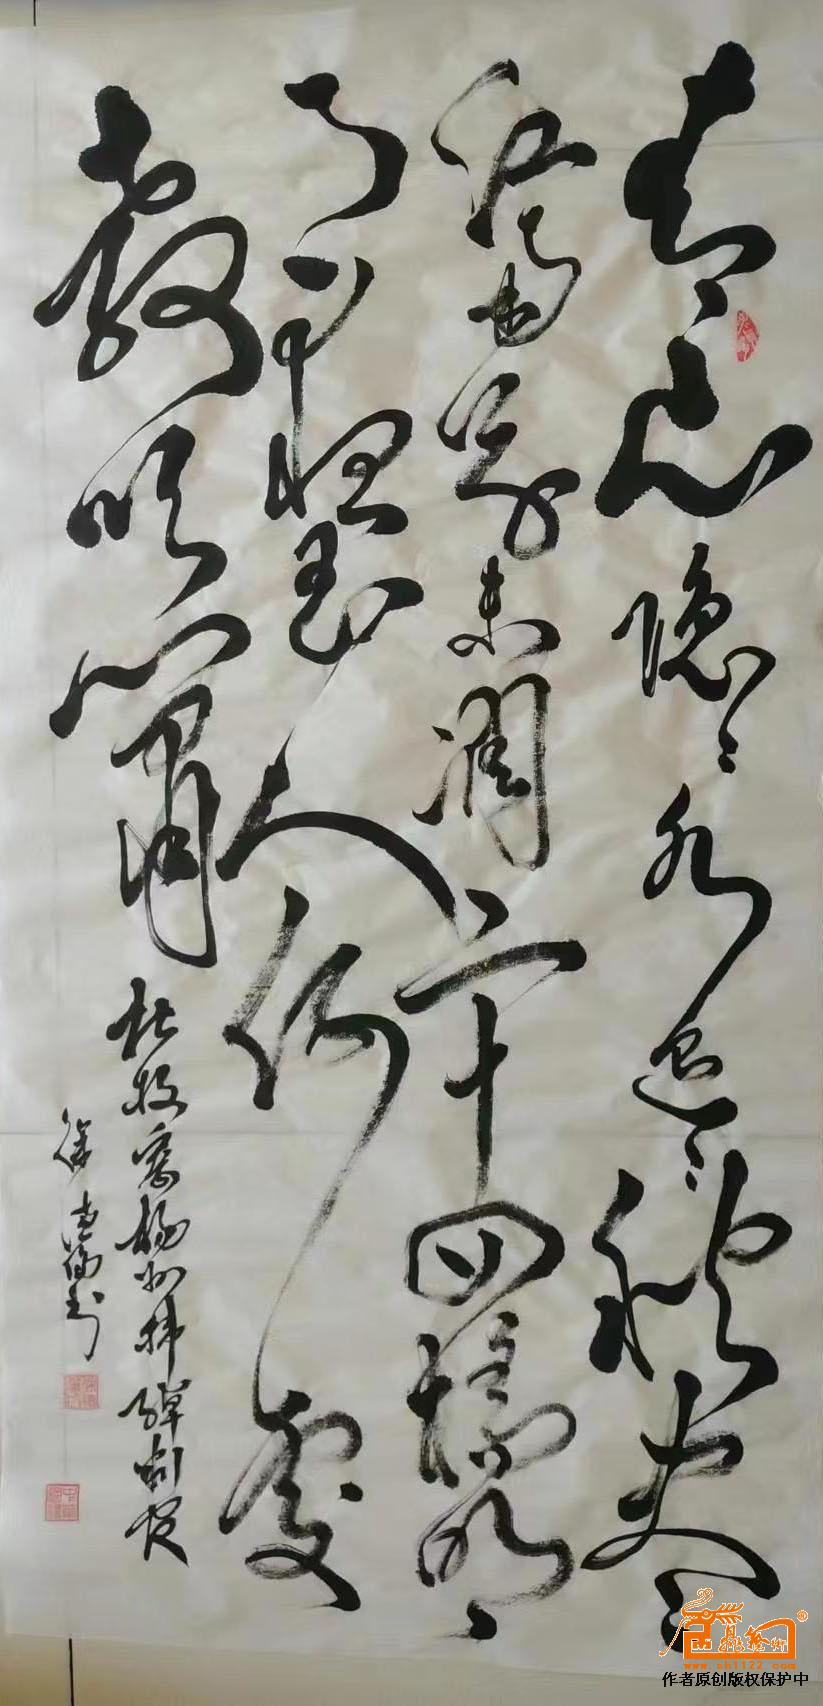 青山隐〻水迢〻秋尽
江南草未凋二十四橋明
月夜玉人何處
教吹簫
杜牧寄揚州韩绰判官
徐
www.sh1122.com
作者原创版权保护中